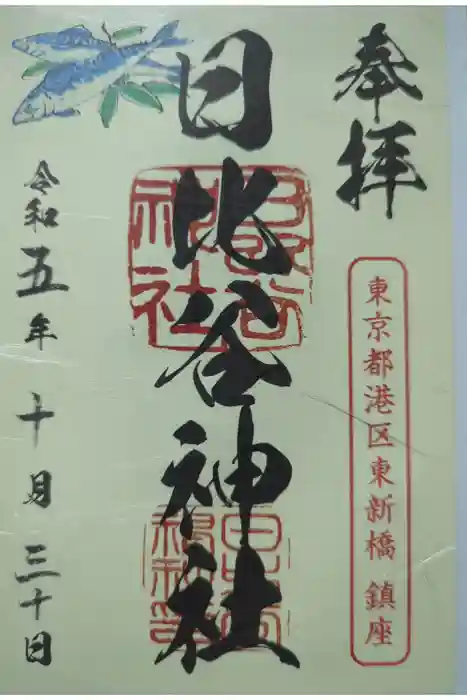 奉拝
東京都港区東新橋 鎮座
日比谷神社
令和五年 十月 三十日